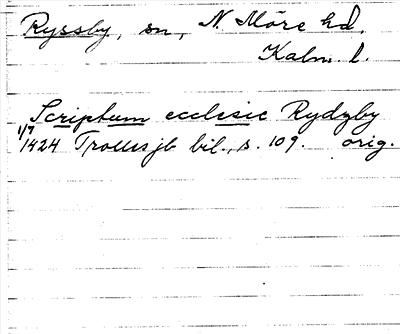 Ryssby, sn, N. Möre hd,
Kalm. l.
Scriptum ecclesie Rydzby
1/7 1424 Trollesjb bil., s. 109. orig.